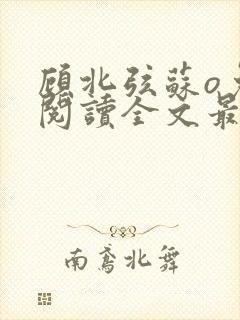 顾北弦蘇o
閱讀全文最
南鸢北舞